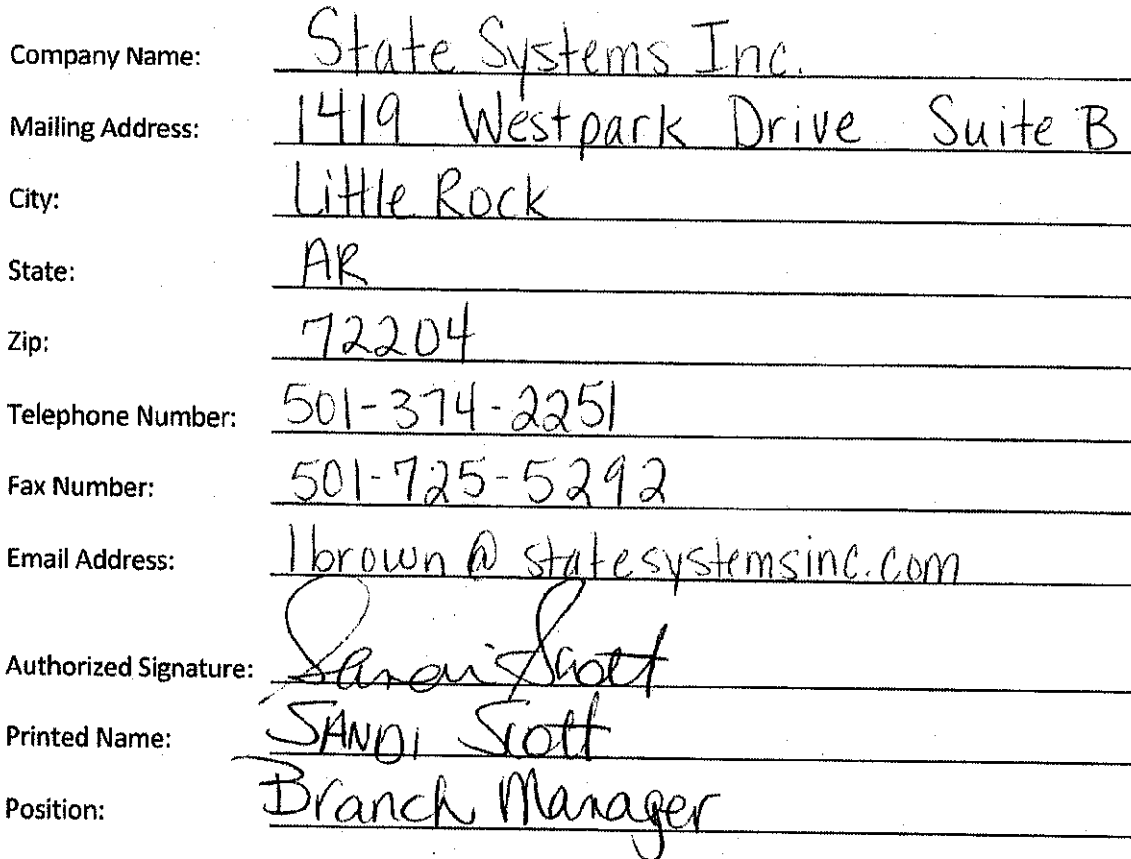 Company Name: State Systems Inc.
Mailing Address: 1419 Westpark Drive Suite B
City: Little Rock
State: AR
Zip: 72204
Telephone Number: 501-374-2251
Fax Number: 501-725-5292
Email Address: lbrown@statesystemsinc.com
Authorized Signature: Sandi Scott
Printed Name: SANDI Scott
Position: Branch Manager